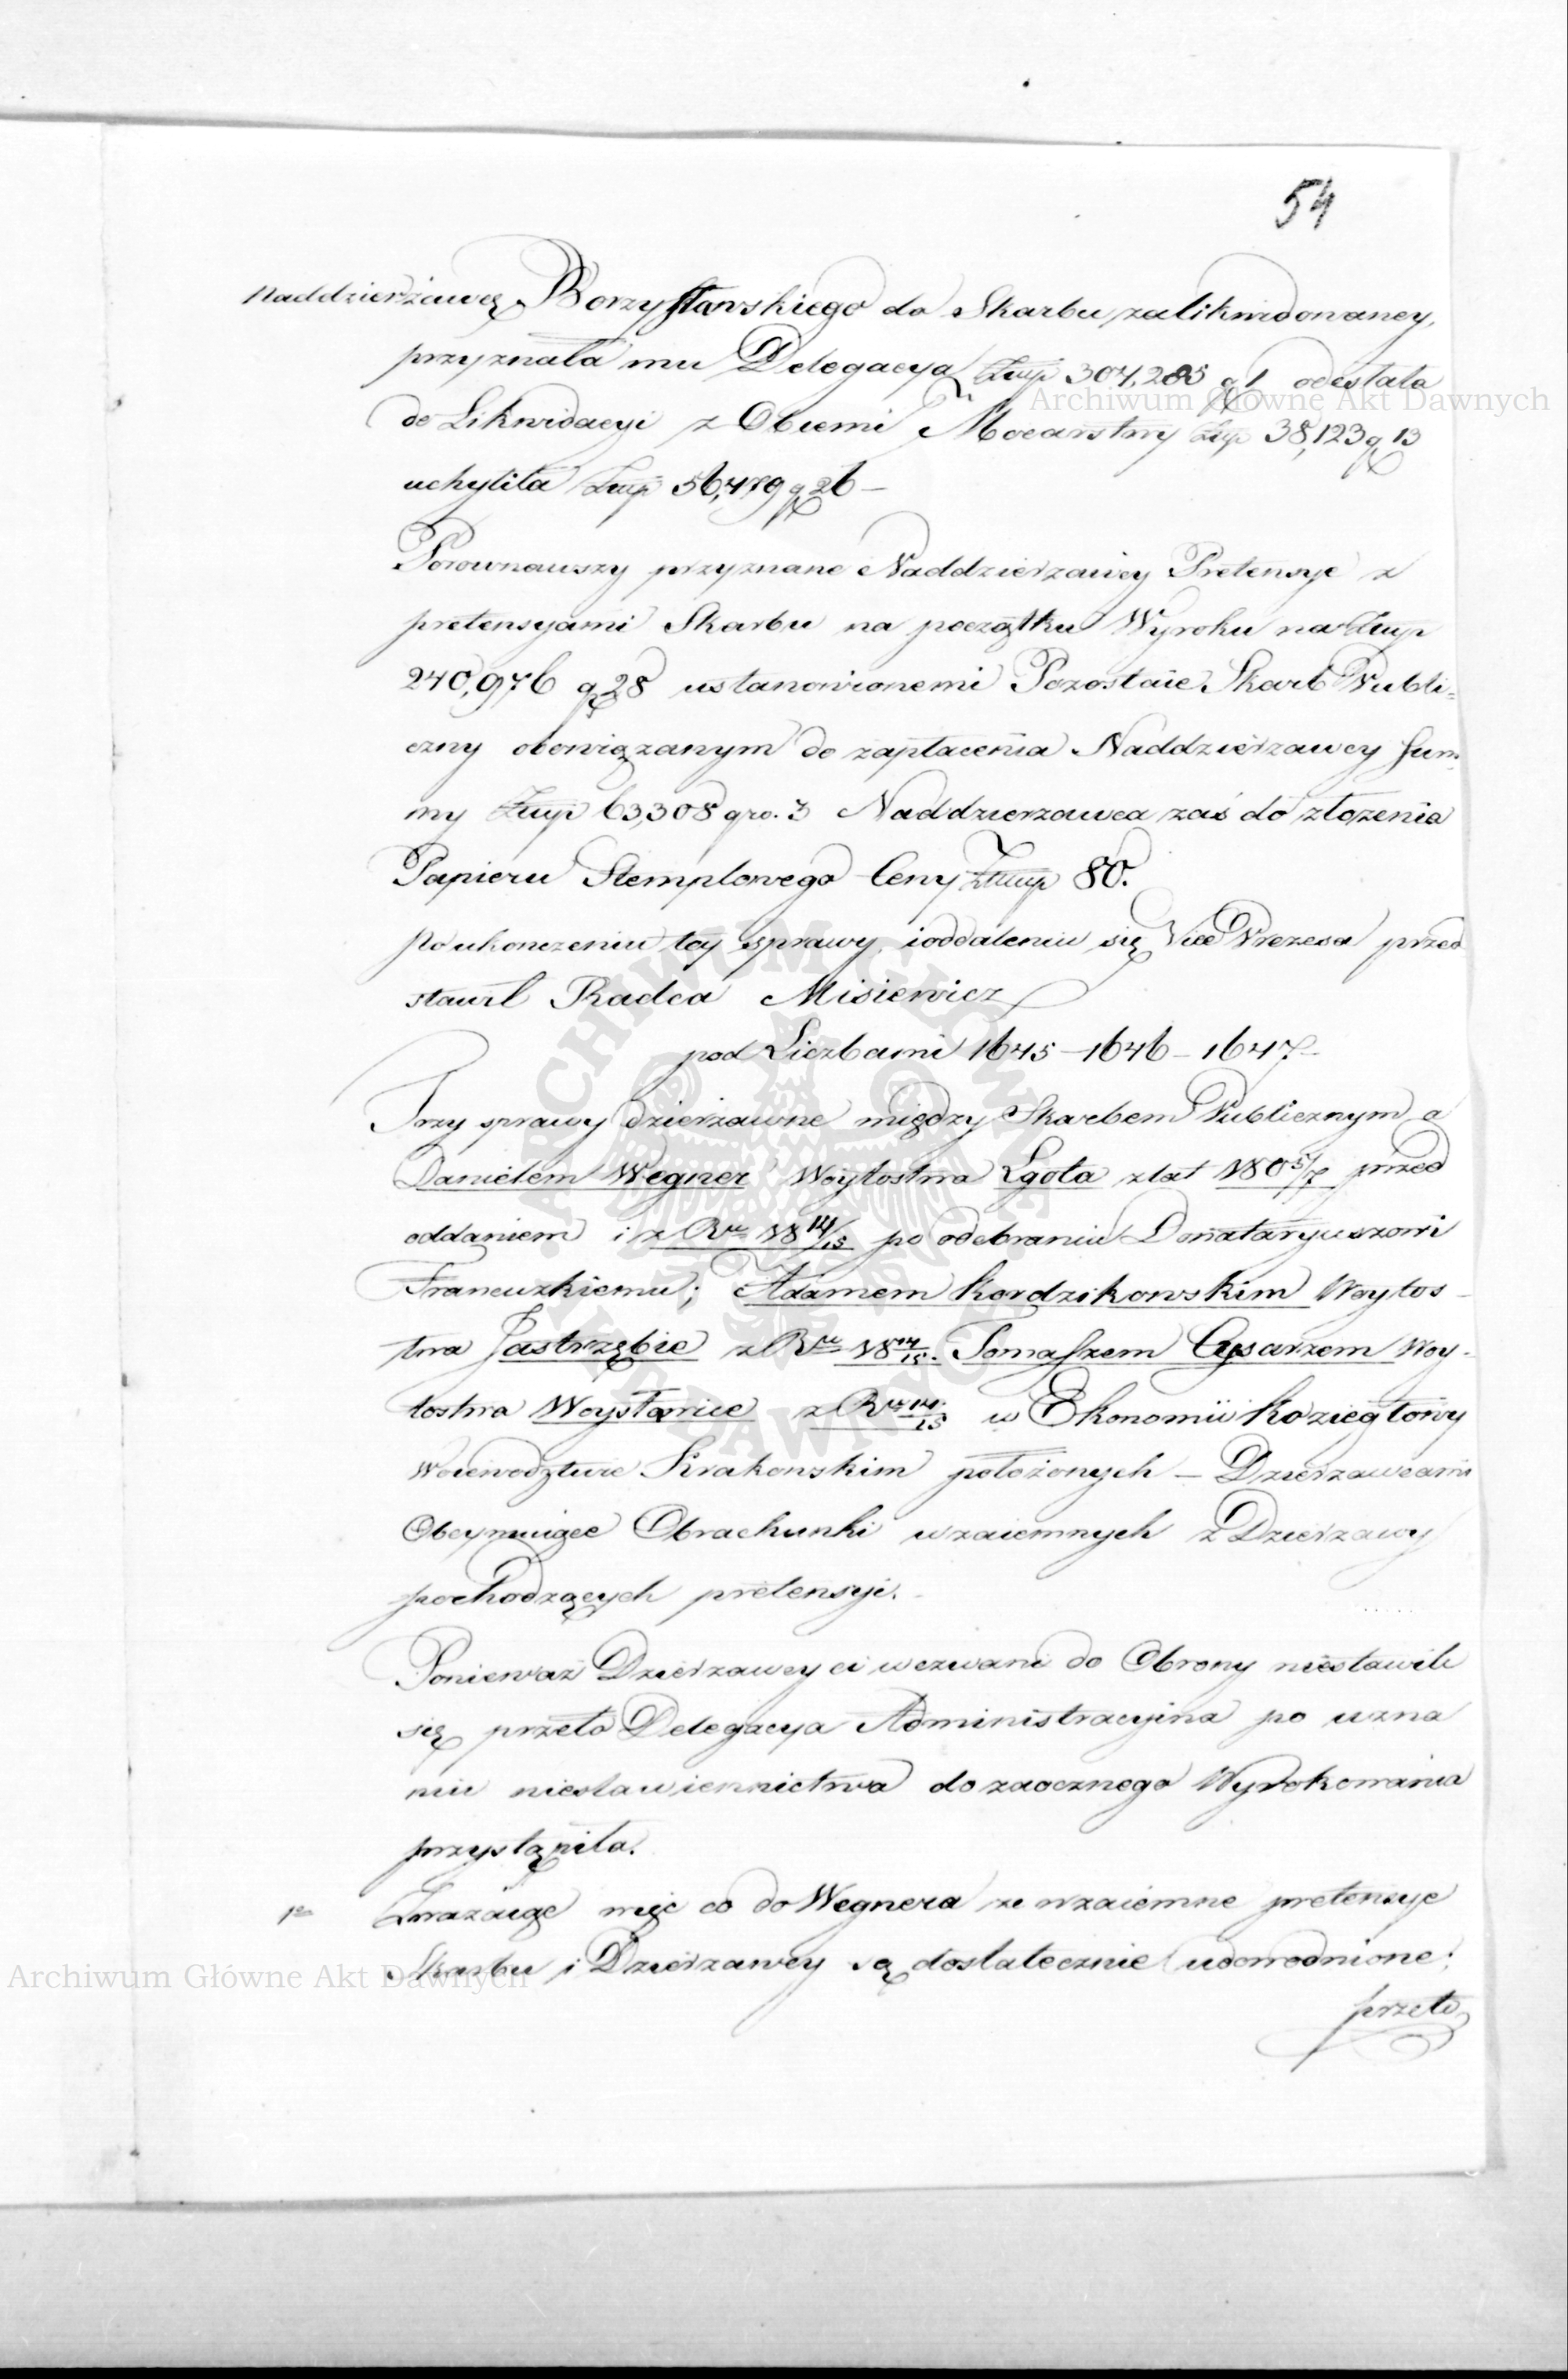 54
Naddzierżawcę Borzysławskiego do Skarbu zalikwidowaney,
przyznała mu Delegacya Złłp 304,285 g 1 odesłała
do Likwidacyi z Obiemi Mocarstwy Złp 38,123 g 13
uchyliła Złłp 56,479 g 26 –
Porownawszy przyznane Naddzierzawcy Pretensye z
pretensyami Skarbu na początku Wyroku na Złłp
240,976 g 28 ustanowionemi Pozostaie Skarb Publi=
czny obowiązanym do zapłacenia Naddzierzawcy Sum=
my Złłp 63,308 gro. 3 Naddzierzawca zaś do złożenia
Papieru Stemplowego Ceny Złłp 80.
Po ukonczeniu tey sprawy, i oddaleniu się Vice Prezesa przed
stawił Radca Misiewicz
pod Liczbami 1645 – 1646 – 1647 –
Trzy sprawy dzierżawne między Skarbem Publicznym a
Danielem Wegner Woytostwa Lgota z lat 180 5/7 przed
oddaniem i z Ru 18 14/15 po odebraniu Donataryuszowi
Francuzkiemu; Adamem Kordzikowskim Woytos –
twa Jastrzębie z Ru 18 14/15. Tomaszem Cysarzem Woy-
tostwa Woysławice z Ru 14/15 w Ekonomii Koziegłowy
Woiewodztwie Krakowskim położonych – Dzierzawcami
Obeymuiące Obrachunki wzaiemnych z Dzierzawy
pochodzących pretensyi.
Ponieważ Dzierzawcy ci wezwani do Obrony niestawili
się przeto Delegacya Administracyina po uzna
niu niestawiennictwa do zaocznego Wyrokowania
przystąpiła.
1o Zważaiąc więc co do Wegnera ze wzaiemne pretensye
Skarbu i Dzierzawcy są dostatecznie udowodnione;
przeto
Archiwum Główne Akt Dawnych
Archiwum Główne Akt Dawnych
ARCHIWUM GŁÓWNE AKT DAWNYCH